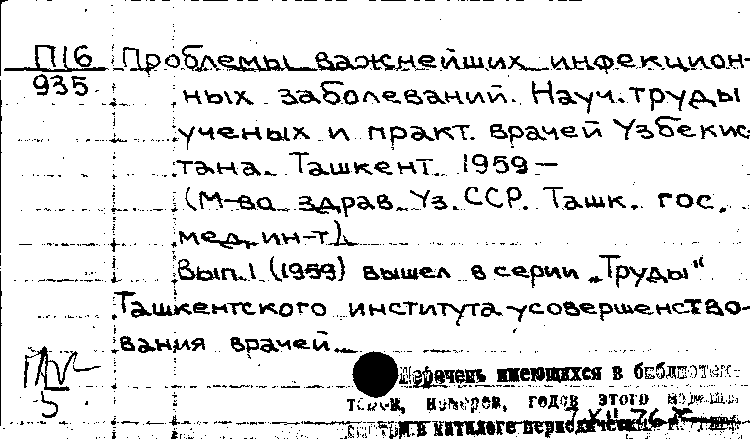 П16 Проблемы важнейших инфекцион-
935 ных заболеваний. Науч. труды
ученых и практ. врачей Узбекис
тана. Ташкент. 1959—
(М-во здрав. Уз. ССР. Ташк. гос.
мед. ин-т).
Вып.1 (1959) вышел в серии „Труды"
Ташкентского института усовершенство-
вания врачей.
5
Перечень имеющихся в библиотек-
номеров, годов этого
в каталоге